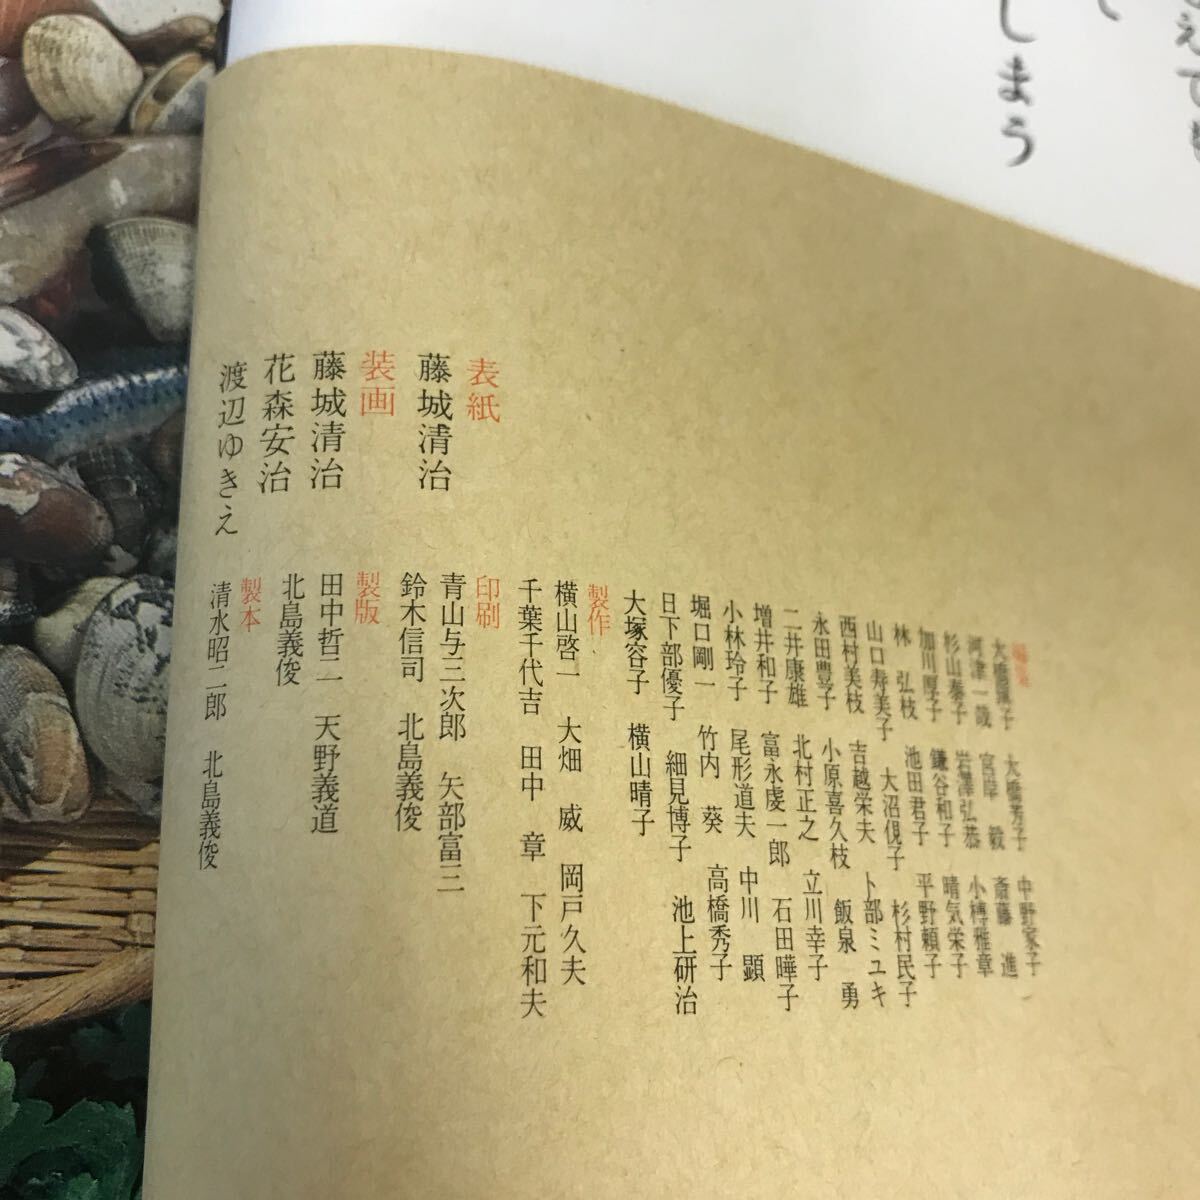 しまう
表紙
藤城清治
装画
藤城清治
花森安治
渡辺ゆきえ
編集
大橋芳子 中野家子
河津一哉 宮岸 毅 斎藤 進
杉山泰子 岩澤弘恭 小榑雅章
加川厚子 鎌谷和子 晴気栄子
林 弘枝 池田君子 平野頼子
山口寿美子 大沼俔子 杉村民子
西村美枝 吉越栄夫 卜部ミユキ
永田豊子 小原喜久枝 飯泉 勇
二井康雄 北村正之 立川幸子
増井和子 富永虔一郎 石田曄子
小林玲子 尾形道夫 中川 顕
堀口剛一 竹内 葵 高橋秀子
日下部優子 細見博子 池上研治
大塚容子 横山晴子
製作
横山啓一 大畑 威 岡戸久夫
千葉千代吉 田中 章 下元和夫
印刷
青山与三次郎 矢部富三
鈴木信司 北島義俊
製版
田中哲二 天野義道
北島義俊
製本
清水昭二郎 北島義俊